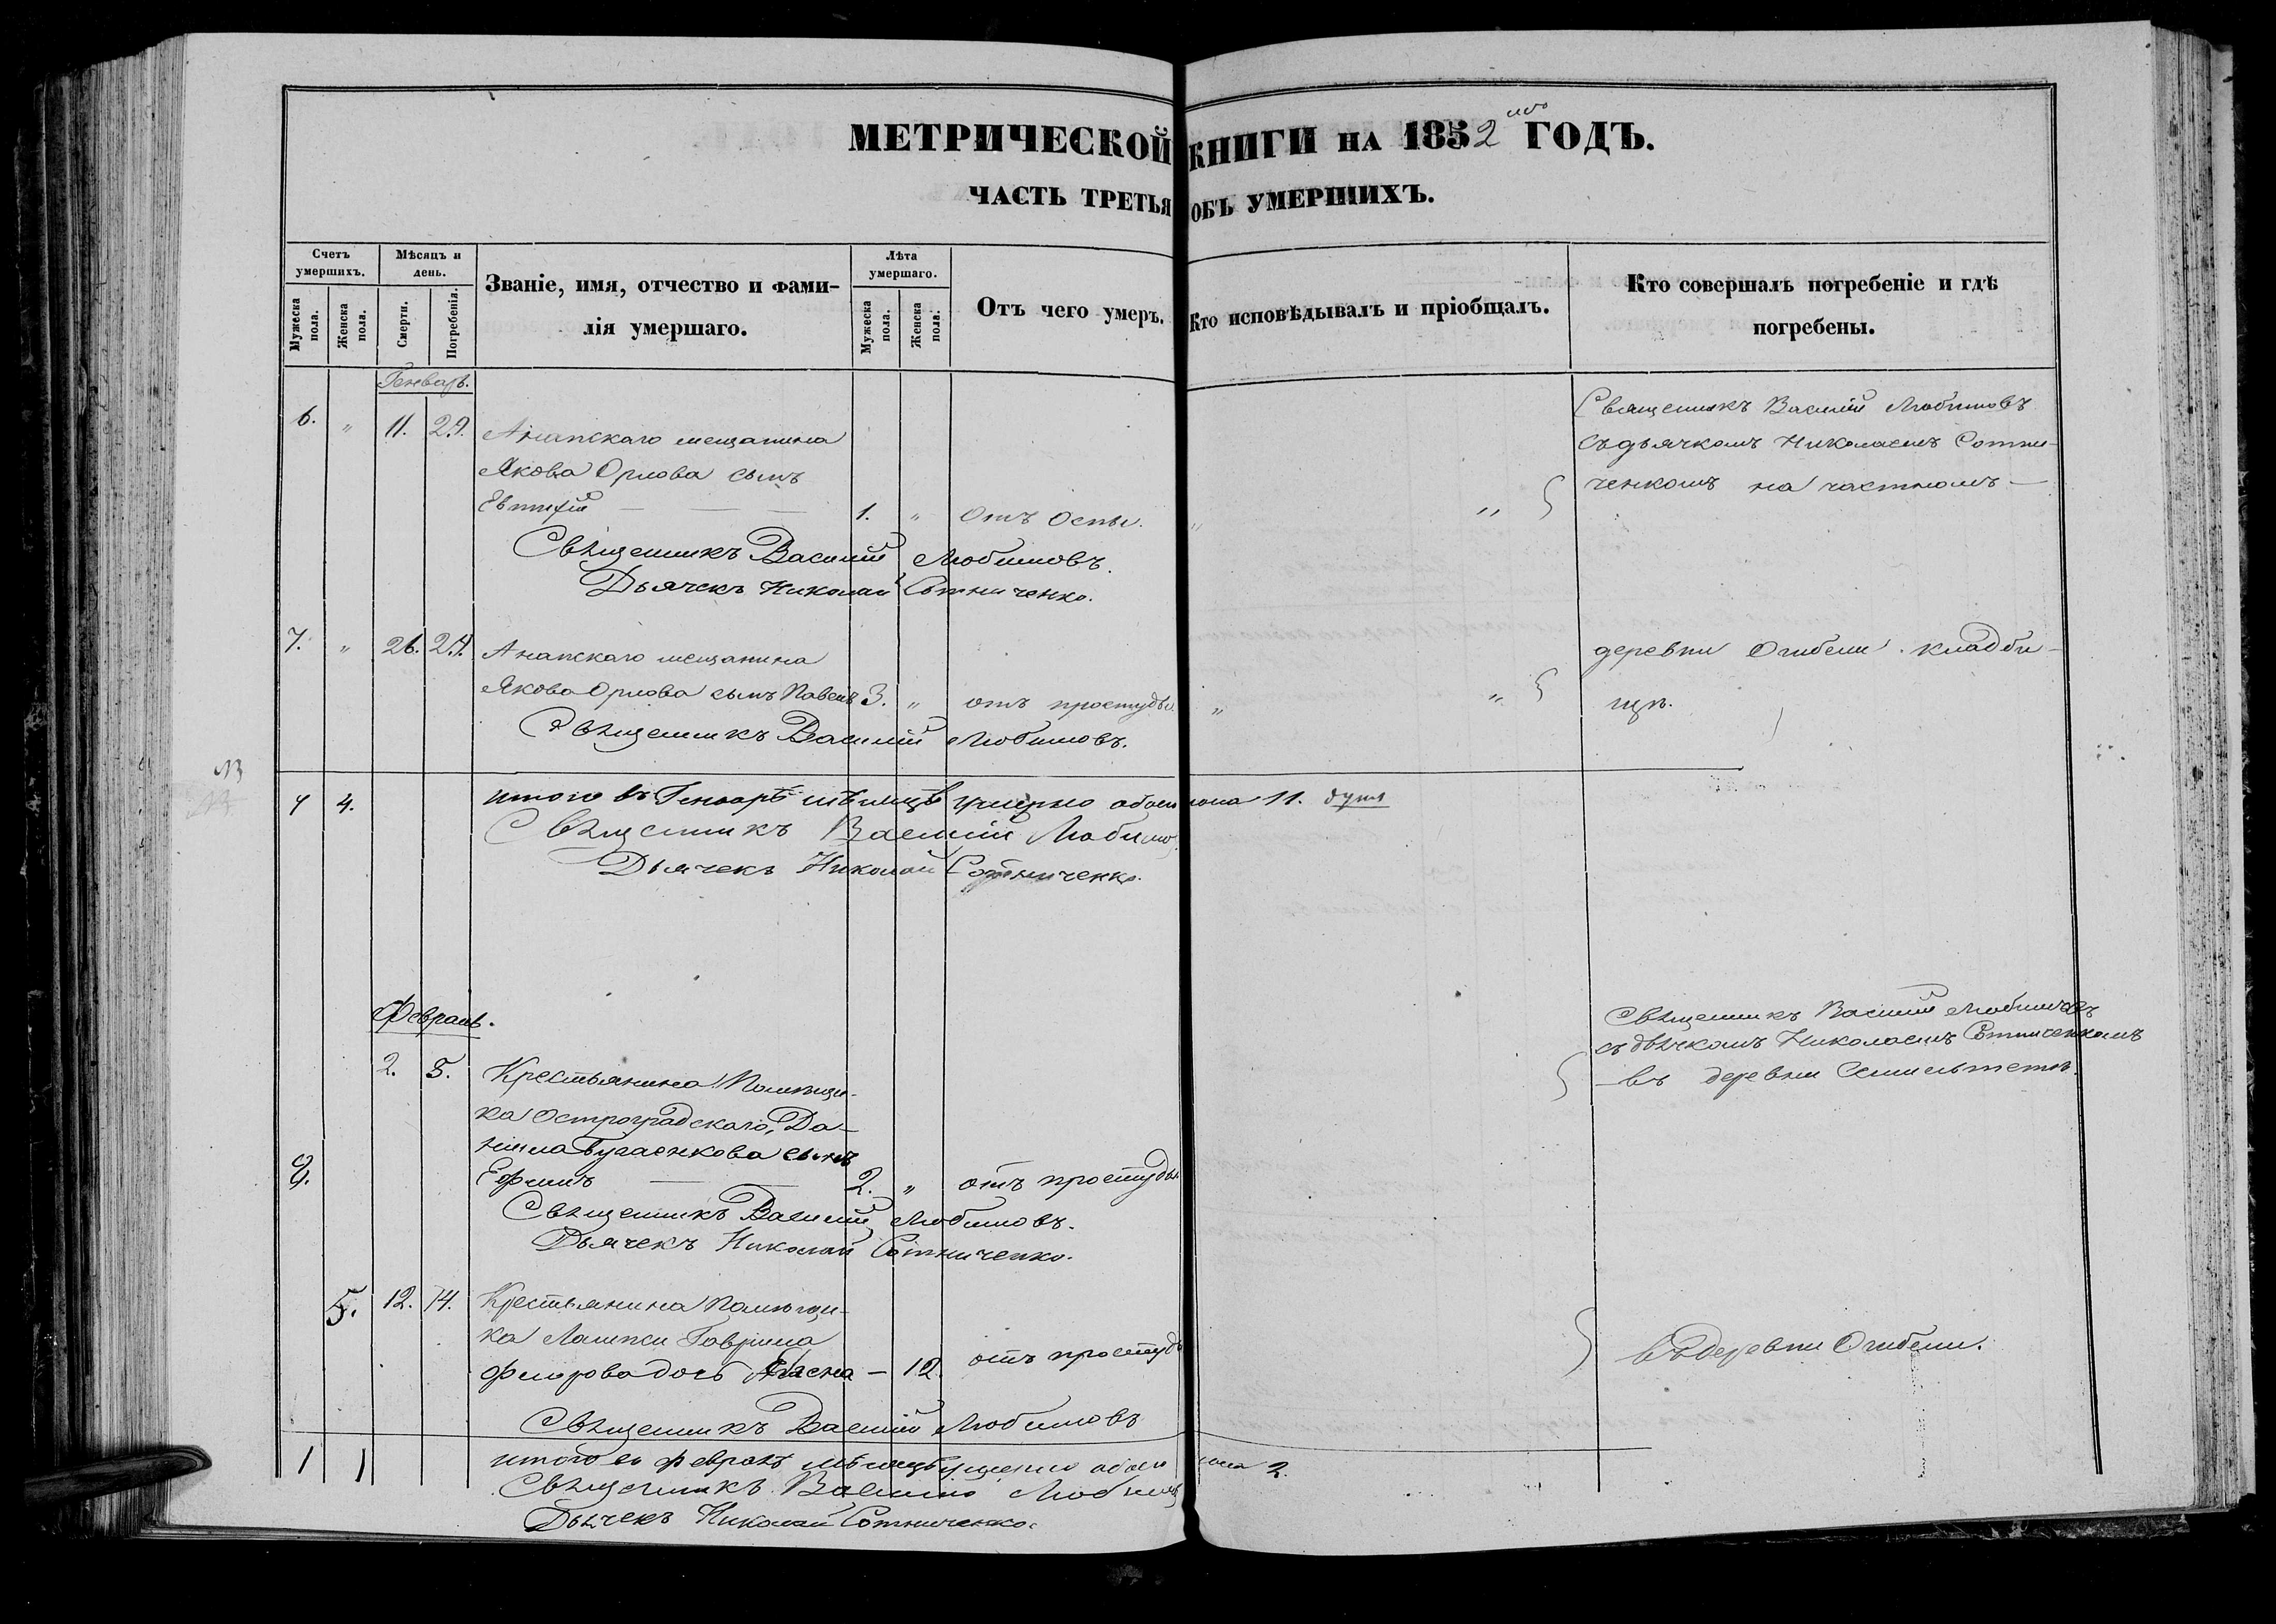 МЕТРИЧЕСКОЙ КНИГИ НА 1852 го ГОДЪ.
ЧАСТЬ ТРЕТЬЯ ОБЪ УМЕРШИХЪ.
Счетъ умершихъ.
Мужеска пола.
Женска пола.
Мѣсяцъ и день.
Смерти.
Погребенія.
Званіе, имя, отчество и фами-
лія умершаго.
Лѣта умершаго.
Мужеска пола.
Женска пола.
Отъ чего умеръ.
Кто исповѣдывалъ и пріобщалъ.
Кто совершалъ погребеніе и гдѣ
погребены.
Генварь.
6. " 11. 29. Анапскаго мещанина
Якова Орлова сынъ
Евтихій — — — 1. " Отъ Оспы. " "
Священникъ Василій Любимовъ
съ дьячкомъ Николаемъ Сотни-
ченкомъ на частномъ —
Священникъ Василій Любимовъ.
Дьячекъ Николай Сотниченко.
7. " 26. 29. Анапскаго мещанина
Якова Орлова сынъ Павелъ 3. " отъ простуды. " "
деревни кладби-
щѣ.
Священникъ Василій Любимовъ.
7 4. итого въ Генварѣ мѣсяцѣ умерло обоего пола 11. душъ
Священникъ Василій Любимо
Дьячекъ Николай Сотниченко.
Февраль.
2. 5. Крестьянина Помѣщи-
ка Остроградскаго, Да-
ніила Бугаенкова сынъ
8. Ефимъ — — 2. " отъ простуды
Священникъ Василій Любимовъ
съ дьячкомъ Николаемъ Сотниченкомъ
— въ деревни
Священникъ Василій Любимовъ.
Дьячекъ Николай Сотниченко.
5. 12. 14. Крестьянина Помѣщи-
ка Гаврила
дочь — 12. отъ простуды
въ деревни
Священникъ Василій Любимовъ
1 1 итого въ февралѣ мѣсяцѣ умерло обоего пола 2.
Священникъ Василій Любимо
Дьячекъ Николай Сотниченко.